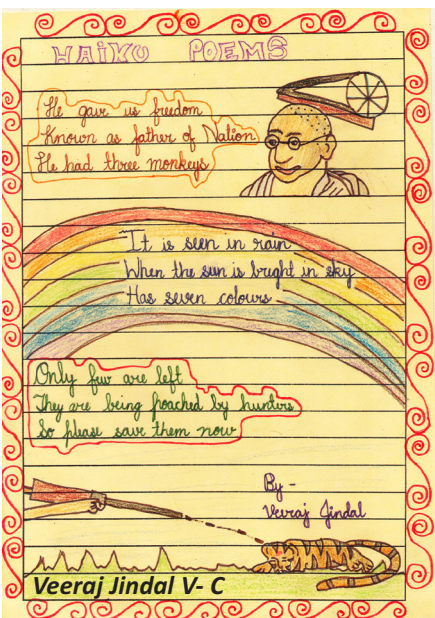 HAIKU POEMS
He gave us freedom
Known as father of Nation
He had three monkeys
It is seen in rain
When the sun is bright in sky
Has seven colours
Only few are left
They are being poached by hunters
So please save them now
By -
Veeraj Jindal
Veeraj Jindal V- C